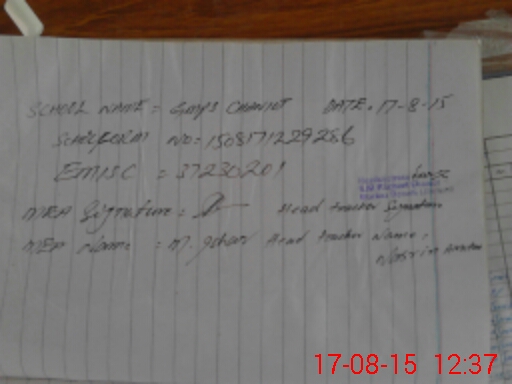 SCHOOL NAME = GMPS CHANIOT DATE. 17-8-15
SCHOLFORM NO = 1508171229286
EMISC = 37230201
MEA Signature = Head teacher Signature
MEA Name = M. Head teacher Name,
Nasrin
17-08-15 12:37